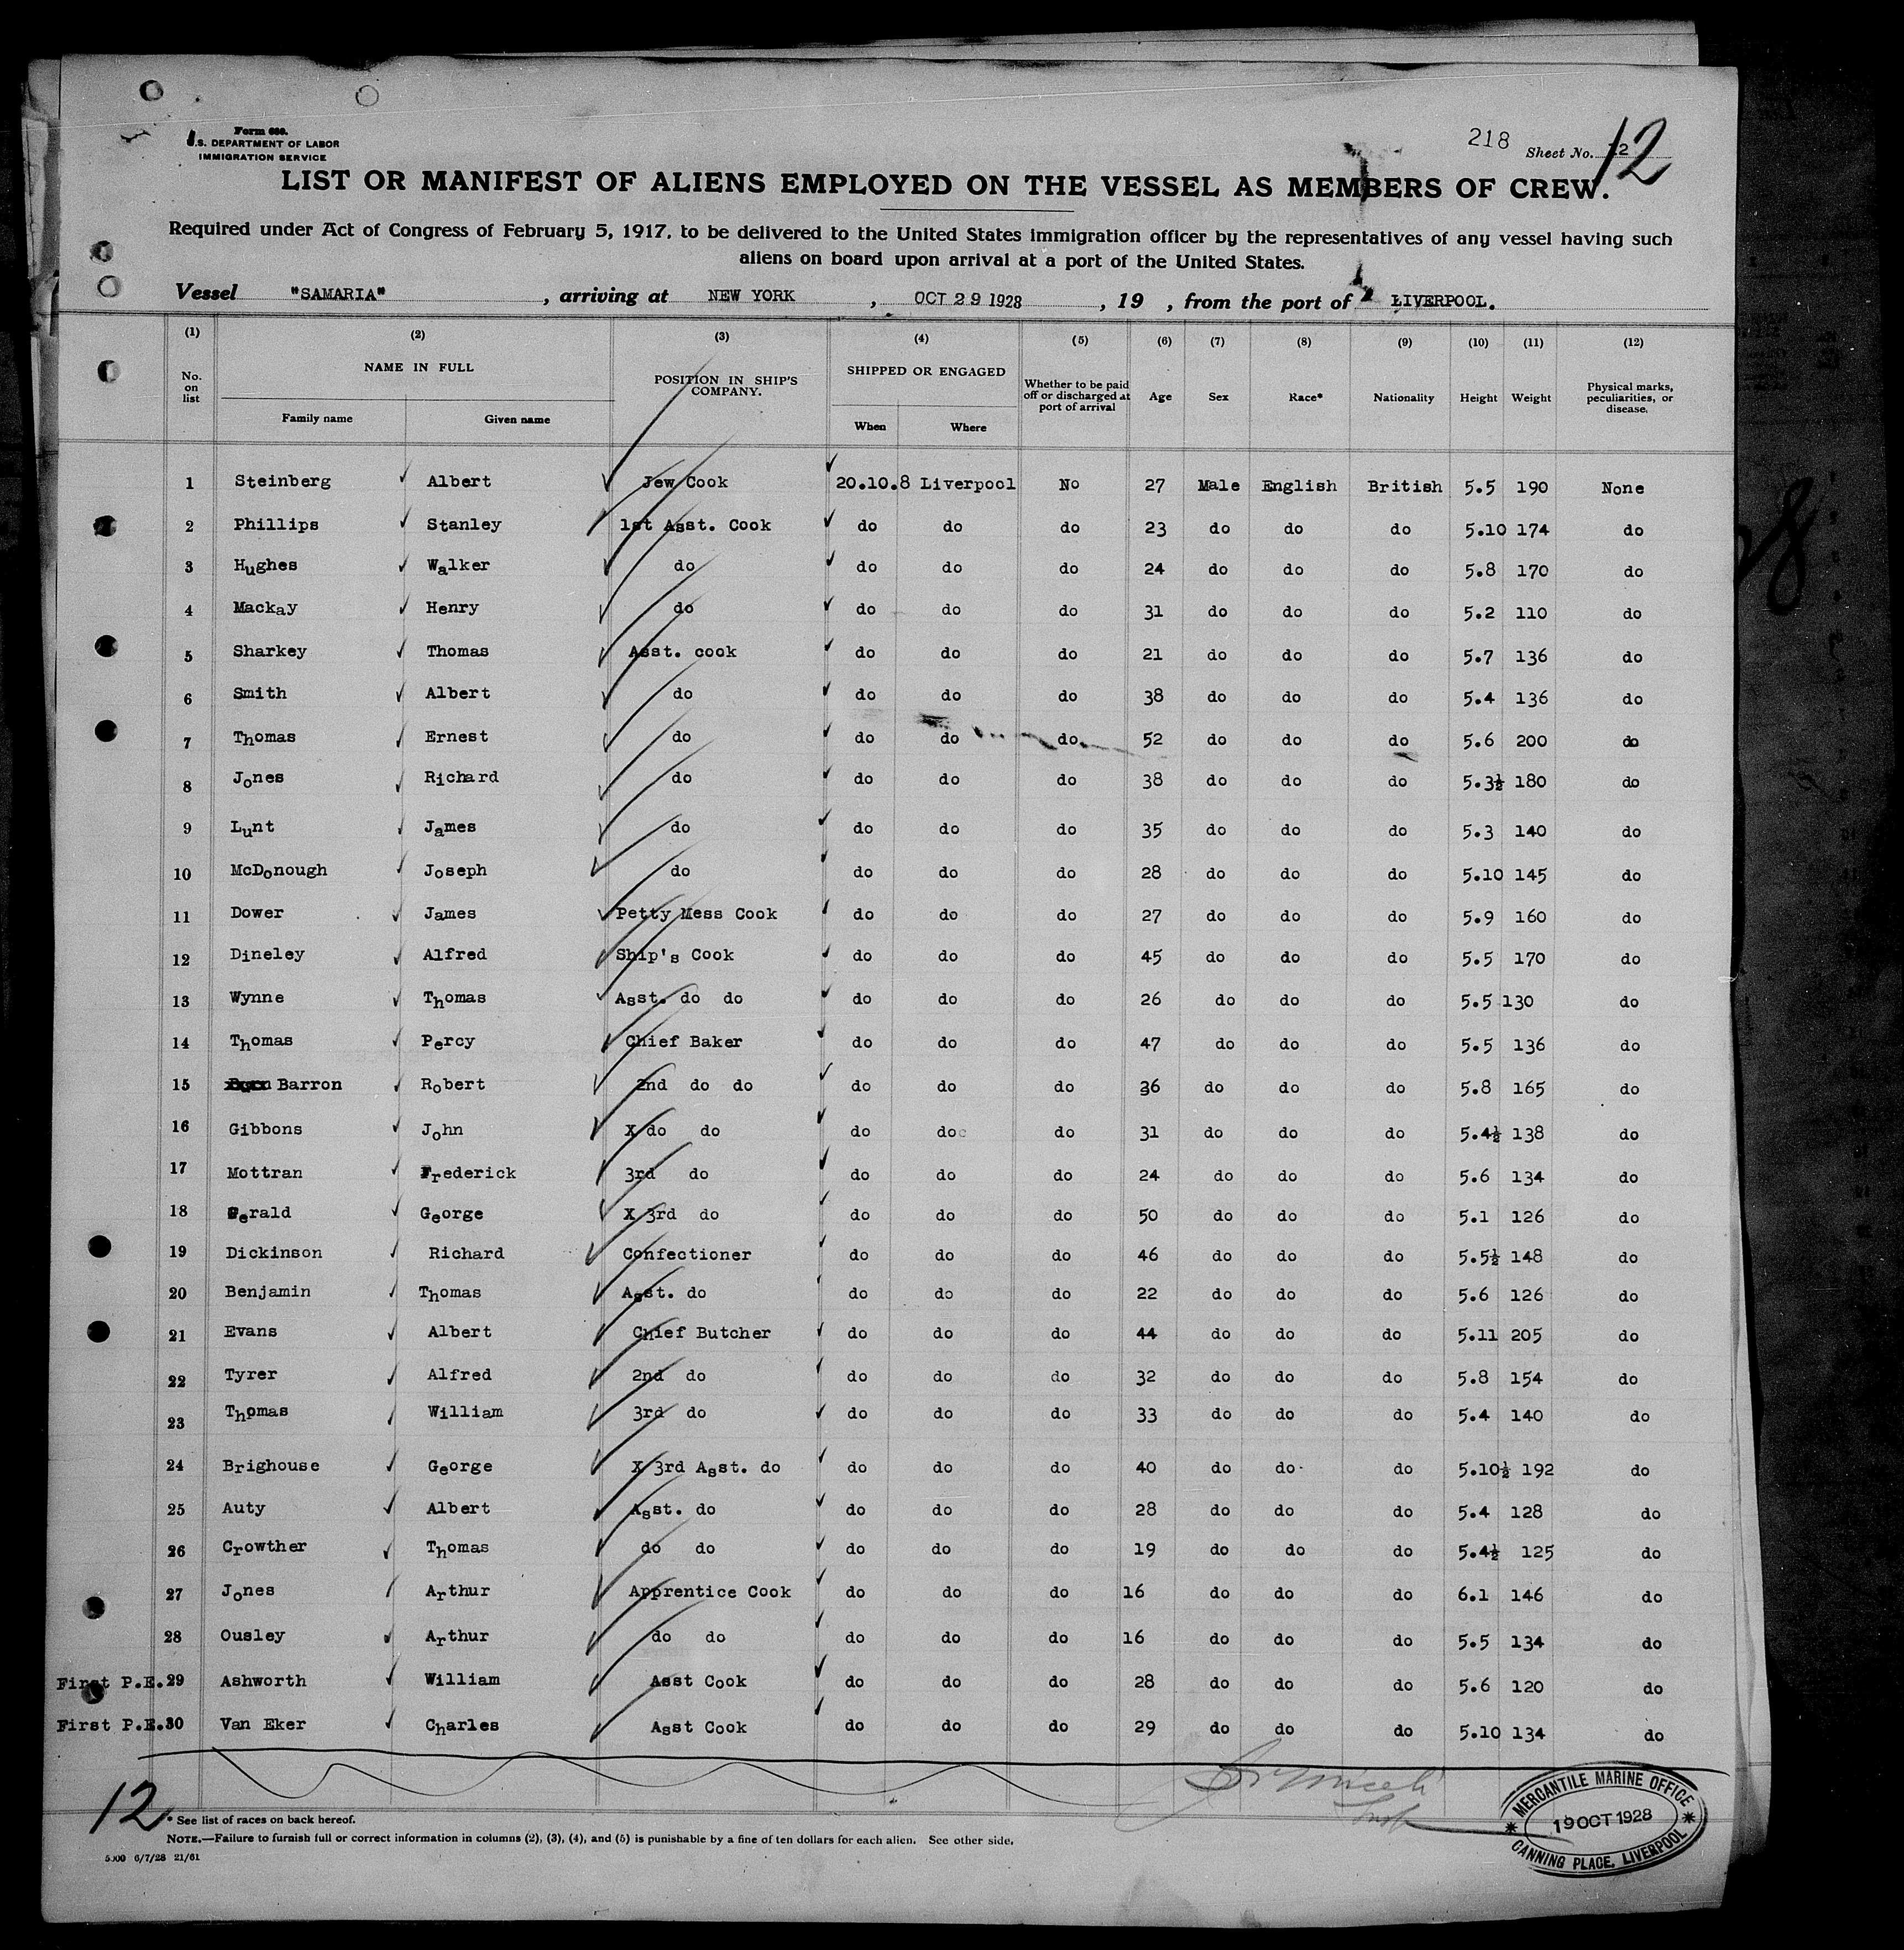 Form 680.
U.S. DEPARTMENT OF LABOR
IMMIGRATION SERVICE
218 Sheet No. 12 12
LIST OR MANIFEST OF ALIENS EMPLOYED ON THE VESSEL AS MEMBERS OF CREW.
Required under Act of Congress of February 5, 1917, to be delivered to the United States immigration officer by the representatives of any vessel having such
aliens on board upon arrival at a port of the United States.
Vessel "SAMARIA", arriving at NEW YORK, OCT 29 1928, 19 , from the port of LIVERPOOL.
(1) (2) (3) (4) (5) (6) (7) (8) (9) (10) (11) (12)
No. on list NAME IN FULL Family name Given name POSITION IN SHIP'S COMPANY. SHIPPED OR ENGAGED When Where Whether to be paid off or discharged at port of arrival Age Sex Race* Nationality Height Weight Physical marks, peculiarities, or disease.
1 Steinberg Albert Jew Cook 20.10.8 Liverpool No 27 Male English British 5.5 190 None
2 Phillips Stanley 1st Asst. Cook do do do 23 do do do 5.10 174 do
3 Hughes Walker do do do do 24 do do do 5.8 170 do
4 Mackay Henry do do do do 31 do do do 5.2 110 do
5 Sharkey Thomas Asst. cook do do do 21 do do do 5.7 136 do
6 Smith Albert do do do do 38 do do do 5.4 136 do
7 Thomas Ernest do do do do 52 do do do 5.6 200 do
8 Jones Richard do do do do 38 do do do 5.3½ 180 do
9 Lunt James do do do do 35 do do do 5.3 140 do
10 McDonough Joseph do do do do 28 do do do 5.10 145 do
11 Dower James Petty Mess Cook do do do 27 do do do 5.9 160 do
12 Dineley Alfred Ship's Cook do do do 45 do do do 5.5 170 do
13 Wynne Thomas Asst. do do do do do 26 do do do 5.5 130 do
14 Thomas Percy Chief Baker do do do 47 do do do 5.5 136 do
15 Barron Robert 2nd do do do do do 36 do do do 5.8 165 do
16 Gibbons John X do do do do do 31 do do do 5.4½ 138 do
17 Mottran Frederick 3rd do do do do 24 do do do 5.6 134 do
18 Gerald George X 3rd do do do do 50 do do do 5.1 126 do
19 Dickinson Richard Confectioner do do do 46 do do do 5.5½ 148 do
20 Benjamin Thomas Asst. do do do do 22 do do do 5.6 126 do
21 Evans Albert Chief Butcher do do do 44 do do do 5.11 205 do
22 Tyrer Alfred 2nd do do do do 32 do do do 5.8 154 do
23 Thomas William 3rd do do do do 33 do do do 5.4 140 do
24 Brighouse George X 3rd Asst. do do do do 40 do do do 5.10½ 192 do
25 Auty Albert Asst. do do do do 28 do do do 5.4 128 do
26 Crowther Thomas do do do do do 19 do do do 5.4½ 125 do
27 Jones Arthur Apprentice Cook do do do 16 do do do 6.1 146 do
28 Ousley Arthur do do do do do 16 do do do 5.5 134 do
First P.E. 29 Ashworth William Asst Cook do do do 28 do do do 5.6 120 do
First P.E. 30 Van Eker Charles Asst Cook do do do 29 do do do 5.10 134 do
12
* See list of races on back hereof.
NOTE.—Failure to furnish full or correct information in columns (2), (3), (4), and (5) is punishable by a fine of ten dollars for each alien. See other side.
5000 6/7/28 21/61
MERCANTILE MARINE OFFICE
19 OCT 1928
CANNING PLACE, LIVERPOOL